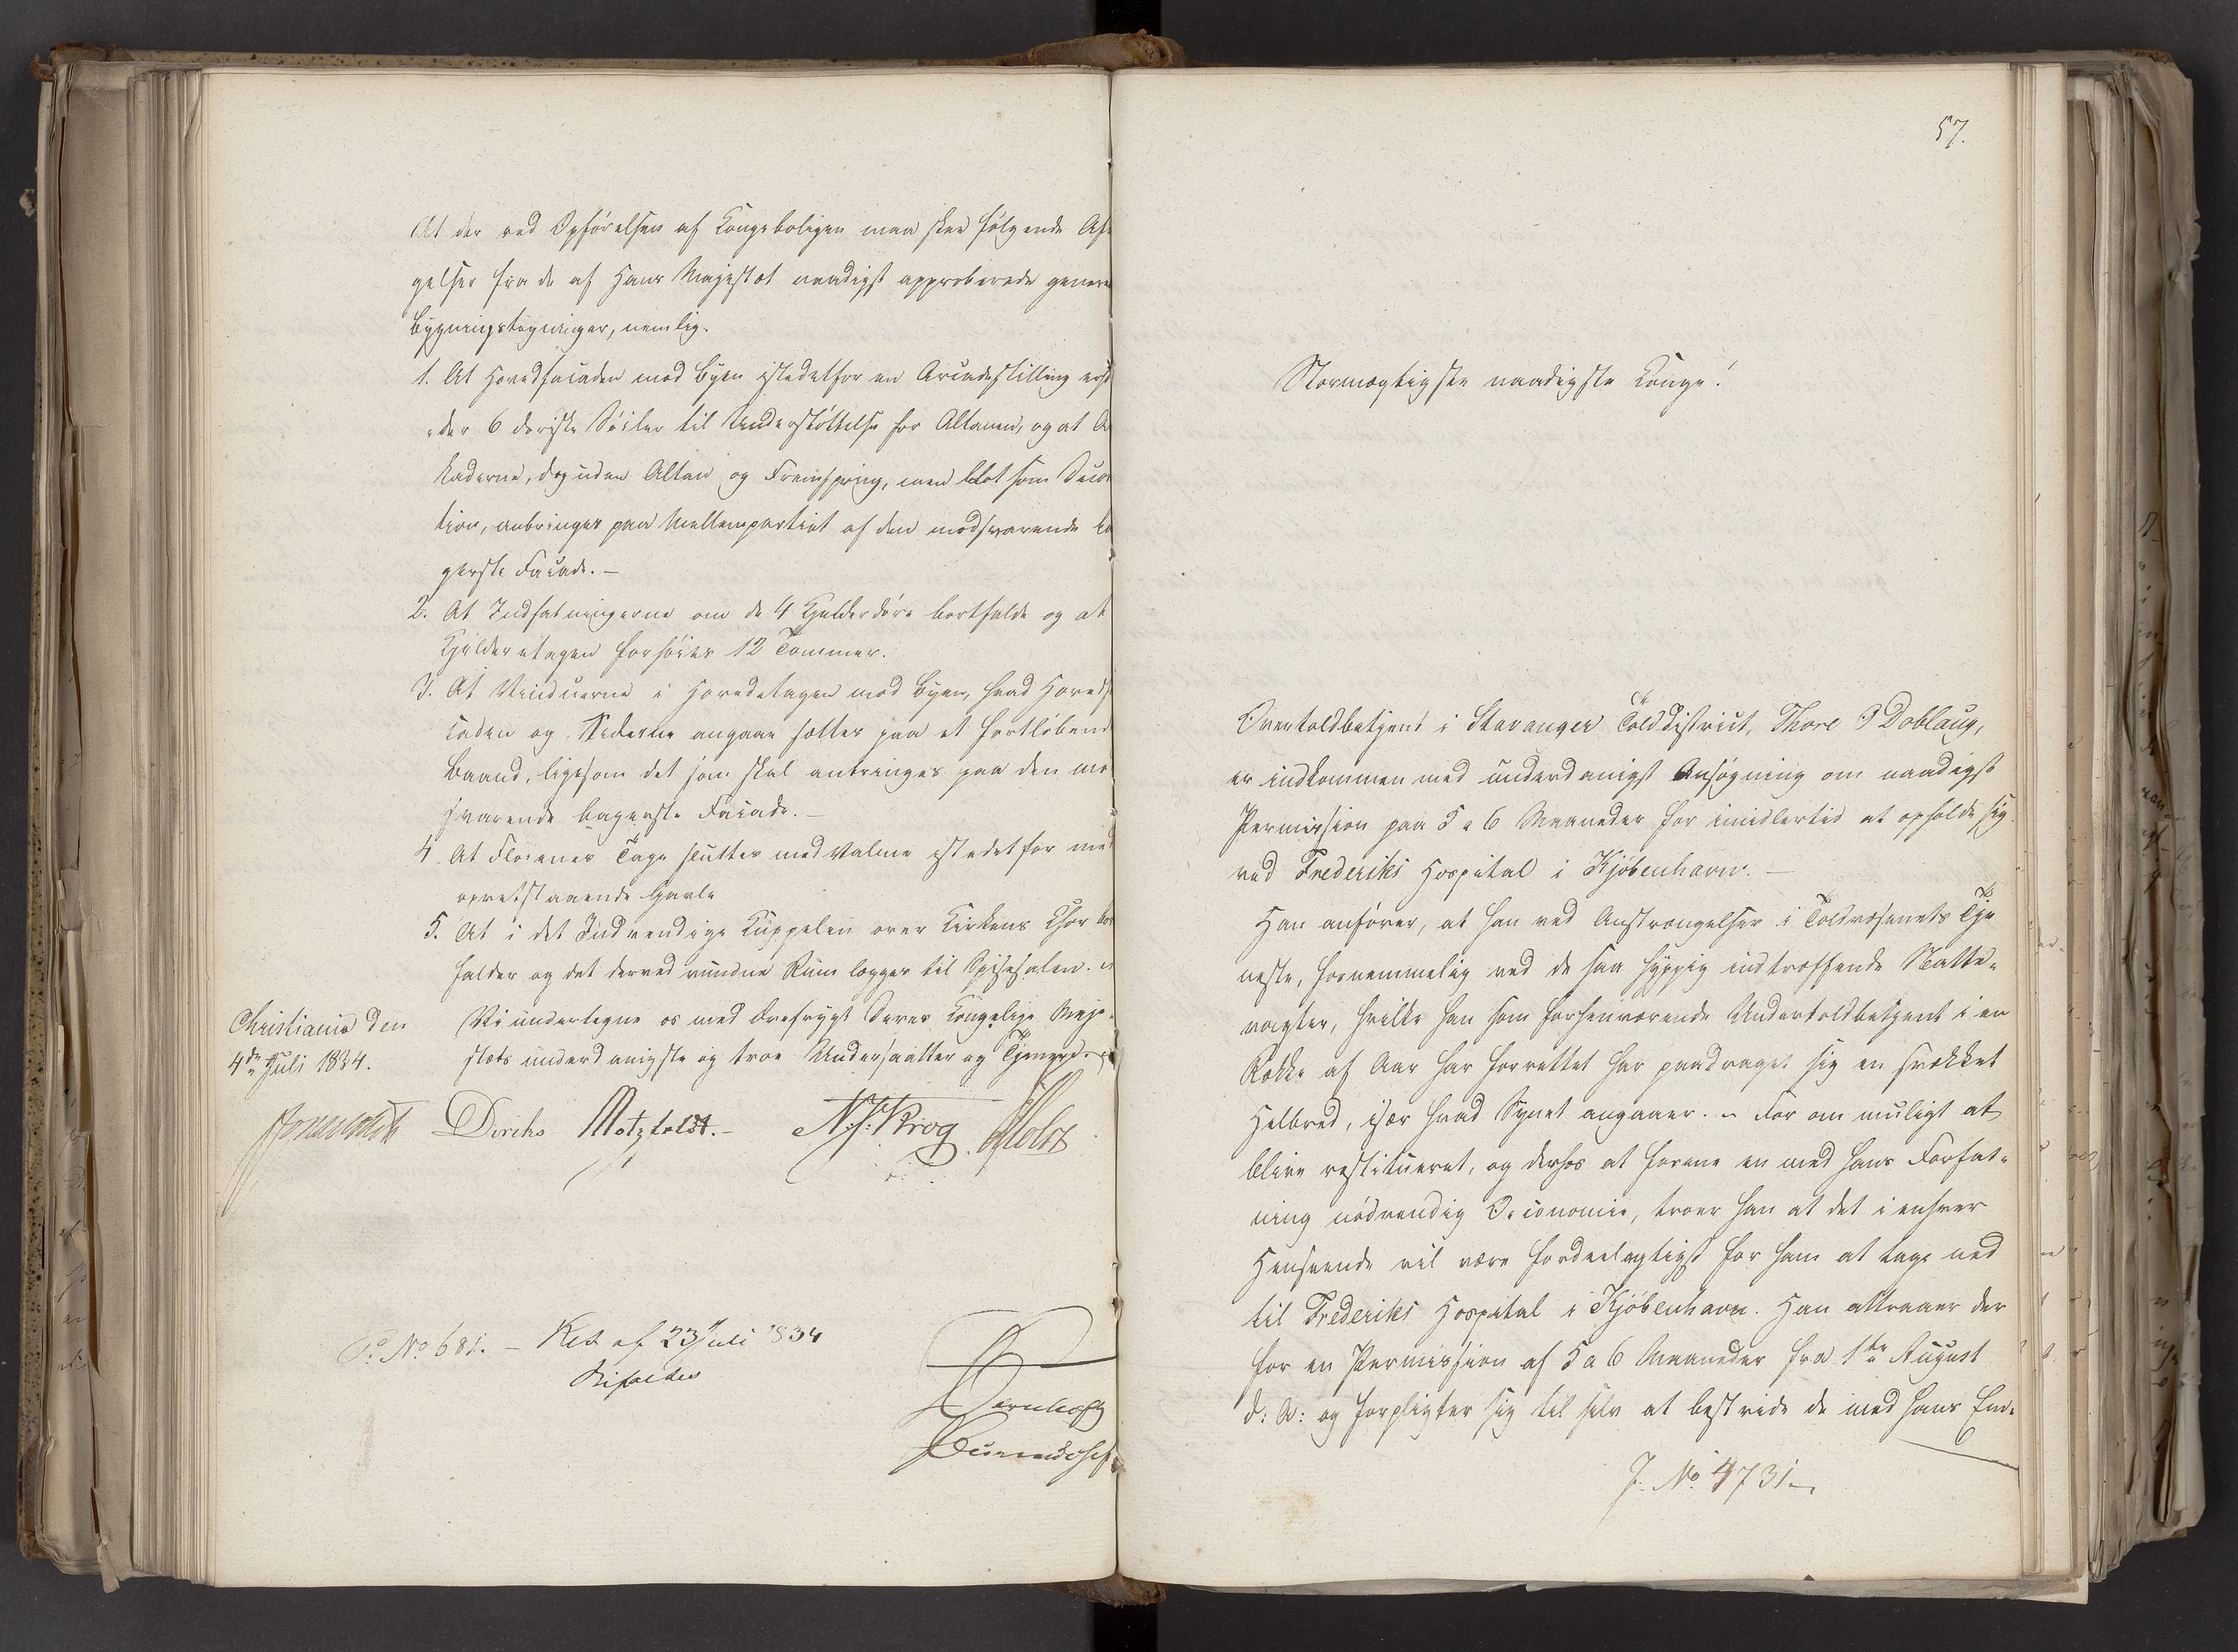 At der ved Opførelsen af Kongeboligen maa skee følgende Afvi
gelser fra de af Hans Majestæt naadigst approberede genere
Bygningstegninger, nemlig:
1. At Hovedfacaden mod Byen istedetfor en Arcadestilling
der 6 doriske Søiler til Understøttelse for Altanen, og at A
kaderne, dog uden Altan og Fremspring, men blot som Decor
tion, anbringes paa Mellempartiet af den modsvarende ba
gerste Facade. —
2. At Indfatningerne om de 4 Kjelderdøre bortfalde og at
Kjelderetagen forhøies 12 Tommer.
3. At Vinduerne i Hovedetagen mod Byen, hvad Hovedf
caden og Siderne angaae sættes paa et fortløbend
Baand, ligesom det som skal anbringes paa den mo
svarende bagerste Facade. —
4. At Fløienes Tage slutter med Valme istedetfor med
opretstaaende Gavle
5. At i det Indvendige Kuppelen over Kirkens Chor bor
falder og det derved vundne Rum lægges til Spisesalen.
Vi undertegne os med Ærefrygt Deres Kongelige Maje-
stæts underdanigste og troe Undersaatter og Tjenere.
Christiania den
4de Juli 1834.
Diriks Motzfeldt. — N. J. Krog Holst
P. No. 681. — Res. af 23 Juli 1834
Bifaldes
57.
Stormægtigste naadigste Konge!
Overtoldbetjent i Stavanger Tolddistrict, Thore O Doblaug,
er indkommen med underdanigst Ansøgning om naadigst
Permission paa 5 a 6 Maaneder for imidlertid at opholde sig
ved Frederiks Hospital i Kjöbenhavn. —
Han anfører, at han ved Anstrængelser i Toldvæsenets Tje
neste, fornemmelig ved de saa hyppig indtræffende Natte-
vagter, hvilke han som forhenværende Undertoldbetjent i en
Række af Aar har forrettet har paadraget sig en svækket
Helbred, især hvad Synet angaaer. — For om muligt at
blive restitueret, og derhos at forene en med hans Forfat-
ning nødvendig Oeconomie, troer han at det i enhver
Henseende vil være fordeelagtigst for ham at tage ned
til Frederiks Hospital i Kjöbenhavn. Han attraaer der
for en Permission af 5 a 6 Maaneder fra 1ste August
d: A: og forpligter sig til selv at bestride de med hans Em-
J. No. 4731